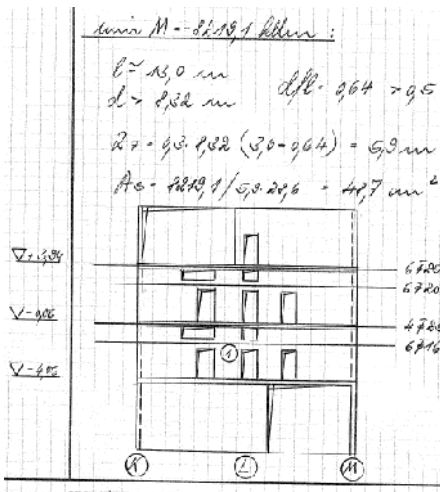 min M = -8219,1 kNm :
l = 13,0 m
d = 8,32 m d/l = 0,64 > 0,5
= 0,3 · 8,32 (3,0 - 0,64) = 5,9 m
As = 8219,1 / 5,9 · 28,6 = 48,7 cm²
6∅20
6∅20
-0,06
6∅16
1
-4,06
K L M